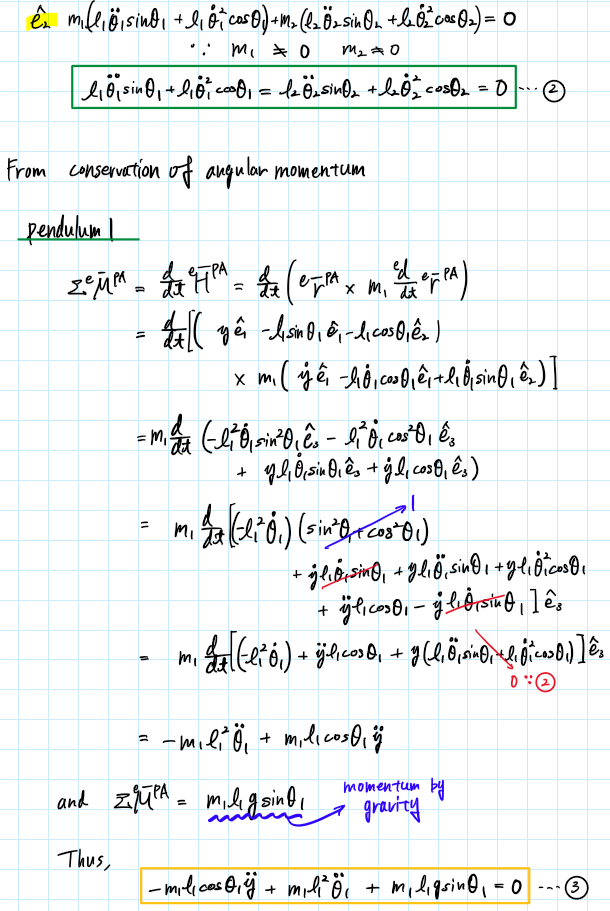 ê₂ m₁(l₁θ̈₁sinθ₁ + l₁θ̇₁²cosθ₁)+m₂(l₂θ̈₂sinθ₂ + l₂θ̇₂²cosθ₂) = 0
∵ m₁ ≠ 0 m₂ ≠ 0
l₁θ̈₁sinθ₁ + l₁θ̇₁²cosθ₁ = l₂θ̈₂sinθ₂ + l₂θ̇₂²cosθ₂ = 0 ··· ②
From conservation of angular momentum
pendulum 1
ΣᵉM̄ᴾᴬ = d/dt ᵉH̄ᴾᴬ = d/dt (ᵉr̄ᴾᴬ × m₁ ᵉd/dt ᵉr̄ᴾᴬ)
= d/dt[( yê₁ - l₁sinθ₁ê₁ - l₁cosθ₁ê₂)
× m₁( ẏê₁ - l₁θ̇₁cosθ₁ê₁ + l₁θ̇₁sinθ₁ê₂)]
= m₁ d/dt (-l₁²θ̇₁sin²θ₁ê₃ - l₁²θ̇₁cos²θ₁ê₃
+ yl₁θ̇₁sinθ₁ê₃ + ẏl₁cosθ₁ê₃)
1
= m₁ d/dt[(-l₁²θ̇₁)(sin²θ₁+cos²θ₁)
+ ẏl₁θ̇₁sinθ₁ + yl₁θ̈₁sinθ₁ + yl₁θ̇₁²cosθ₁
+ ÿl₁cosθ₁ - ẏl₁θ̇₁sinθ₁]ê₃
= m₁ d/dt[(-l₁²θ̇₁) + ÿl₁cosθ₁ + y(l₁θ̈₁sinθ₁+l₁θ̇₁²cosθ₁)]ê₃
0 ∵ ②
= -m₁l₁²θ̈₁ + m₁l₁cosθ₁ÿ
and ΣᵉM̄ᴾᴬ = m₁l₁gsinθ₁ momentum by
gravity
Thus,
-m₁l₁cosθ₁ÿ + m₁l₁²θ̈₁ + m₁l₁gsinθ₁ = 0 ··· ③